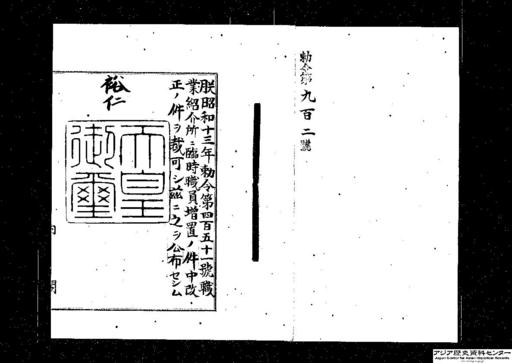 勅令第九百二號
朕昭和十三年勅令第四百五十一號職
業紹介所ニ臨時職員増置ノ件中改
正ノ件ヲ裁可シ茲ニ之ヲ公布セシム
裕仁
天皇
御璽
内閣
アジア歴史資料センター
Japan Center for Asian Historical Records